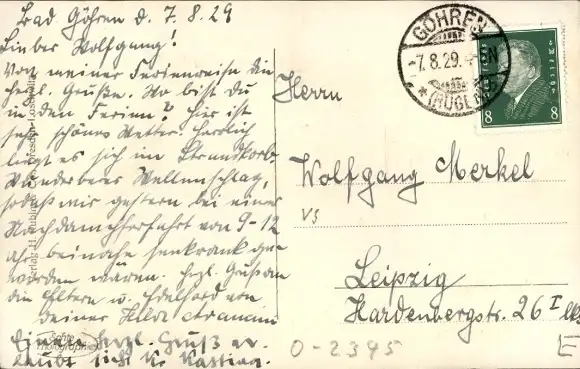 Bad Göhren d. 7.8.29
Lieber Wolfgang!
Von meiner Ferienreise die
herzl. Grüße. Wo bist du
in den Ferien? Hier ist
sehr schönes Wetter. Herrlich
liegt es sich im Strandkorb.
Wunderbarer Wellenschlag,
sodaß wir gestern bei einer
Nachdampferfahrt von 9-12
Uhr beinahe seekrank ge-
worden wären. Herzl. Gruß an
die Eltern u. von
deiner Hilde
Einen herzl. Gruß er-
laubt sich
GÖHREN
-7.8.29.
(RÜGEN)
8 8
Herrn
Wolfgang Merkel
VS
Leipzig
Hardenbergstr. 26 I
0-2395
Echte
Photographie